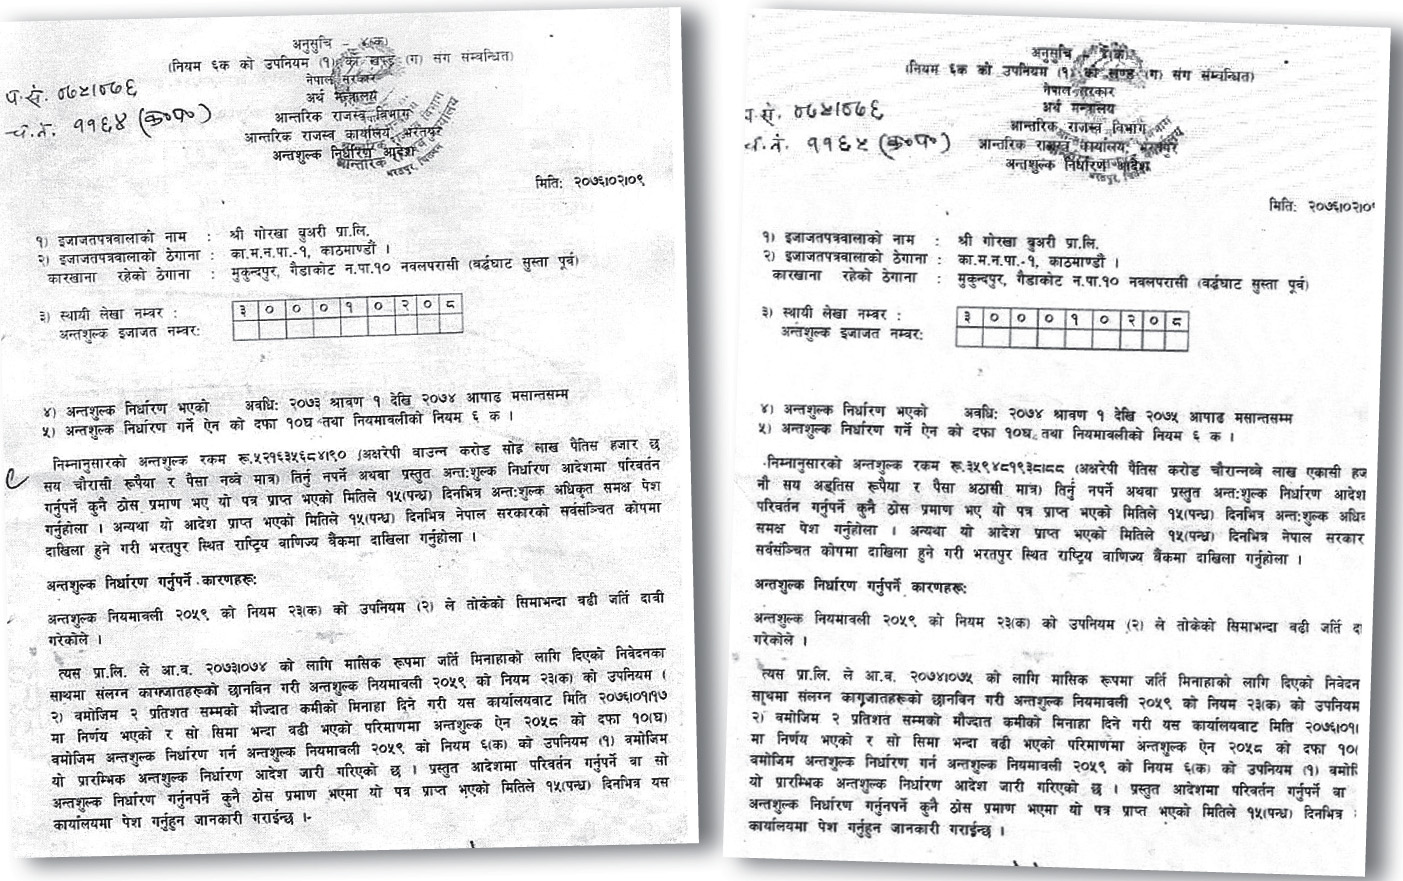 अनुसुचि - ४(क)
(नियम ६क को उपनियम (१) को खण्ड (ग) संग सम्वन्धित)
नेपाल सरकार
अर्थ मन्त्रालय
आन्तरिक राजस्व विभाग
आन्तरिक राजस्व कार्यालय, भरतपुर
अन्तशुल्क निर्धारण आदेश
प.सं. ०७५।०७६
च.नं. ११६४ (क०प०)
मिति: २०७६।०२।०९
१) इजाजतपत्रवालाको नाम : श्री गोरखा व्रुअरी प्रा.लि.
२) इजाजतपत्रवालाको ठेगाना : का.म.न.पा.-१, काठमाण्डौं ।
कारखाना रहेको ठेगाना : मुकुन्दपुर, गैडाकोट न.पा.१० नवलपरासी (बर्द्धघाट सुस्ता पूर्व)
३) स्थायी लेखा नम्वर : ३ ० ० ० १ ० २ ० ८
अन्तशुल्क इजाजत नम्वर:
४) अन्तशुल्क निर्धारण भएको अवधि: २०७३ श्रावण १ देखि २०७४ आषाढ मसान्तसम्म
५) अन्तशुल्क निर्धारण गर्ने ऐन को दफा १०घ तथा नियमावलीको नियम ६ क ।
निम्नानुसारको अन्तशुल्क रकम रू.५२१६३५६८४।९० (अक्षरेपी वाउन्न करोड सोह्र लाख पैतिस हजार छ
सय चौरासी रूपैया र पैसा नव्वे मात्र) तिर्नु नपर्ने अथवा प्रस्तुत अन्त:शुल्क निर्धारण आदेशमा परिवर्तन
गर्नुपर्ने कुनै ठोस प्रमाण भए यो पत्र प्राप्त भएको मितिले १५(पन्ध्र) दिनभित्र अन्त:शुल्क अधिकृत समक्ष पेश
गर्नुहोला । अन्यथा यो आदेश प्राप्त भएको मितिले १५(पन्ध्र) दिनभित्र नेपाल सरकारको सर्वसंञ्चित कोषमा
दाखिला हुने गरी भरतपुर स्थित राष्ट्रिय वाणिज्य वैंकमा दाखिला गर्नुहोला ।
अन्तशुल्क निर्धारण गर्नुपर्ने कारणहरू:
अन्तशुल्क नियमावली २०५९ को नियम २३(क) को उपनियम (२) ले तोकेको सिमाभन्दा वढी जर्ति दावी
गरेकोले ।
त्यस प्रा.लि. ले आ.व. २०७३।०७४ को लागि मासिक रूपमा जर्ति मिनाहाको लागि दिएको निवेदनका
साथमा संलग्न कागजातहरूको छानविन गरी अन्तशुल्क नियमावली २०५९ को नियम २३(क) को उपनियम (
२) वमोजिम २ प्रतिशत सम्मको मौज्दात कमीको मिनाहा दिने गरी यस कार्यालयवाट मिति २०७६।०१।१७
मा निर्णय भएको र सो सिमा भन्दा वढी भएको परिमाणमा अन्तशुल्क ऐन २०५८ को दफा १०(घ)
वमोजिम अन्तशुल्क निर्धारण गर्न अन्तशुल्क नियमावली २०५९ को नियम ६(क) को उपनियम (१) वमोजिम
यो प्रारम्भिक अन्तशुल्क निर्धारण आदेश जारी गरिएको छ । प्रस्तुत आदेशमा परिवर्तन गर्नुपर्ने वा सो
अन्तशुल्क निर्धारण गर्नुनपर्ने कुनै ठोस प्रमाण भएमा यो पत्र प्राप्त भएको मितिले १५(पन्ध्र) दिनभित्र यस
कार्यालयमा पेश गर्नुहुन जानकारी गराईन्छ ।-
अनुसुचि
(नियम ६क को उपनियम (१) को खण्ड (ग) संग सम्वन्धित)
नेपाल सरकार
अर्थ मन्त्रालय
आन्तरिक राजस्व विभाग
आन्तरिक राजस्व कार्यालय, भरतपुर
अन्तशुल्क निर्धारण आदेश
प.सं. ०७५।०७६
च.नं. ११६५ (क०प०)
मिति: २०७६।०२।०
१) इजाजतपत्रवालाको नाम : श्री गोरखा व्रुअरी प्रा.लि.
२) इजाजतपत्रवालाको ठेगाना : का.म.न.पा.-१, काठमाण्डौं ।
कारखाना रहेको ठेगाना : मुकुन्दपुर, गैडाकोट न.पा.१० नवलपरासी (बर्द्धघाट सुस्ता पूर्व)
३) स्थायी लेखा नम्वर : ३ ० ० ० १ ० २ ० ८
अन्तशुल्क इजाजत नम्वर:
४) अन्तशुल्क निर्धारण भएको अवधि: २०७४ श्रावण १ देखि २०७५ आषाढ मसान्तसम्म
५) अन्तशुल्क निर्धारण गर्ने ऐन को दफा १०घ तथा नियमावलीको नियम ६ क ।
निम्नानुसारको अन्तशुल्क रकम रू.३५९४८१९३८।८८ (अक्षरेपी पैतिस करोड चौरान्नव्वे लाख एकासी हज
नौ सय अड्तिस रूपैया र पैसा अठासी मात्र) तिर्नु नपर्ने अथवा प्रस्तुत अन्त:शुल्क निर्धारण आदेश
परिवर्तन गर्नुपर्ने कुनै ठोस प्रमाण भए यो पत्र प्राप्त भएको मितिले १५(पन्ध्र) दिनभित्र अन्त:शुल्क अधि
समक्ष पेश गर्नुहोला । अन्यथा यो आदेश प्राप्त भएको मितिले १५(पन्ध्र) दिनभित्र नेपाल सरकार
सर्वसंञ्चित कोषमा दाखिला हुने गरी भरतपुर स्थित राष्ट्रिय वाणिज्य वैंकमा दाखिला गर्नुहोला ।
अन्तशुल्क निर्धारण गर्नुपर्ने कारणहरू:
अन्तशुल्क नियमावली २०५९ को नियम २३(क) को उपनियम (२) ले तोकेको सिमाभन्दा वढी जर्ति दा
गरेकोले ।
त्यस प्रा.लि. ले आ.व. २०७४।०७५ को लागि मासिक रूपमा जर्ति मिनाहाको लागि दिएको निवेदन
साथमा संलग्न कागजातहरूको छानविन गरी अन्तशुल्क नियमावली २०५९ को नियम २३(क) को उपनियम
२) वमोजिम २ प्रतिशत सम्मको मौज्दात कमीको मिनाहा दिने गरी यस कार्यालयवाट मिति २०७६।०१।
मा निर्णय भएको र सो सिमा भन्दा वढी भएको परिमाणमा अन्तशुल्क ऐन २०५८ को दफा १०(
वमोजिम अन्तशुल्क निर्धारण गर्न अन्तशुल्क नियमावली २०५९ को नियम ६(क) को उपनियम (१) वमोजि
यो प्रारम्भिक अन्तशुल्क निर्धारण आदेश जारी गरिएको छ । प्रस्तुत आदेशमा परिवर्तन गर्नुपर्ने वा
अन्तशुल्क निर्धारण गर्नुनपर्ने कुनै ठोस प्रमाण भएमा यो पत्र प्राप्त भएको मितिले १५(पन्ध्र) दिनभित्र
कार्यालयमा पेश गर्नुहुन जानकारी गराईन्छ ।